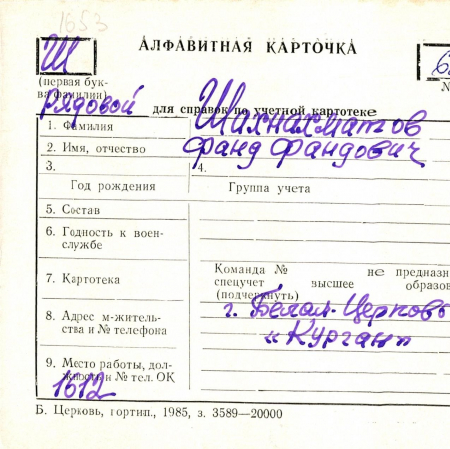 1653
Ш
АЛФАВИТНАЯ КАРТОЧКА
(первая бук-
ва фамилии)
№
рядовой
для справок по учетной картотеке
1. Фамилия
Шахнахматов
2. Имя, отчество
Фанд Фандович
3.
4.
Год рождения
Группа учета
5. Состав
6. Годность к воен-
службе
7. Картотека
Команда № не предназн
спецучет высшее образов
(подчеркнуть)
8. Адрес м-житель-
ства и № телефона
г. Белая-Церковь
"Курган"
9. Место работы, дол-
жность и № тел. ОК
1612
Б. Церковь, гортип., 1985, з. 3589—20000